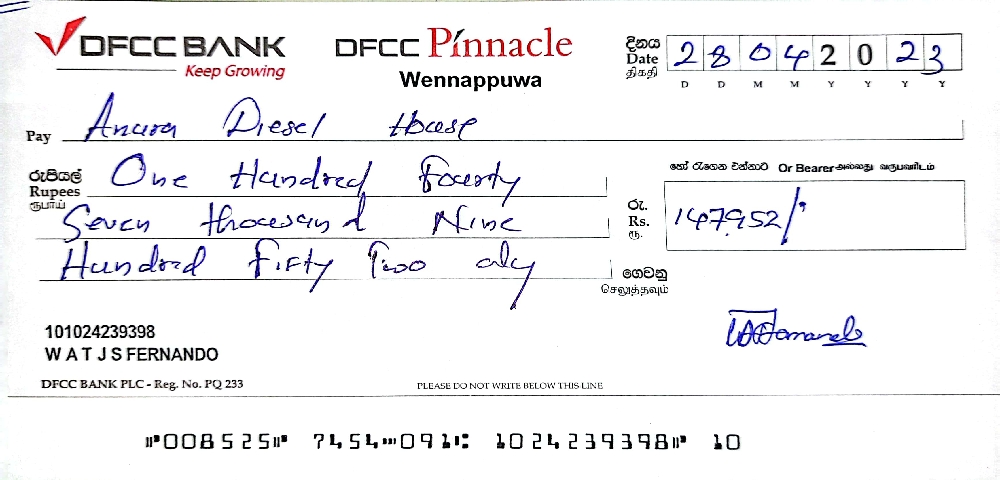 DFCC BANK
Keep Growing
DFCC Pinnacle
Wennappuwa
දිනය
Date
திகதி
2 8 0 4 2 0 2 3
D D M M Y Y Y Y
Pay Anura Diesel House
රුපියල්
Rupees
ரூபாய்
One Hundred Fourty
Seven thousand Nine
Hundred Fifty Two only
හෝ රැගෙන එන්නාට Or Bearer அல்லது வருபவரிடம்
රු.
Rs.
ரூ.
147,952/-
ගෙවනු
செலுத்தவும்
101024239398
W A T J S FERNANDO
DFCC BANK PLC - Reg. No. PQ 233
PLEASE DO NOT WRITE BELOW THIS LINE
⑈008525⑈ 7454⑉091⑆ 1024239398⑈ 10